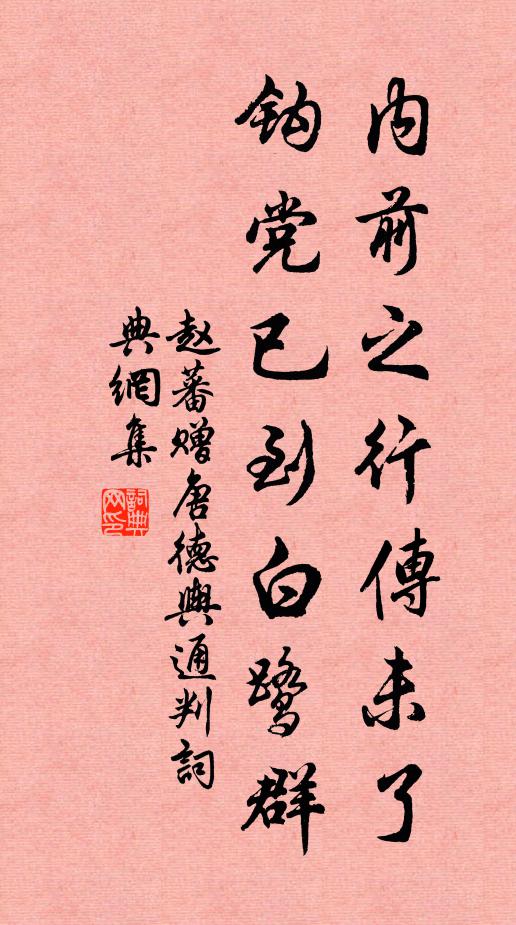 内前之行傳未了
钩党已到白鹭群
赵蕃赠唐德輿通判詞
典網集
詞典网印